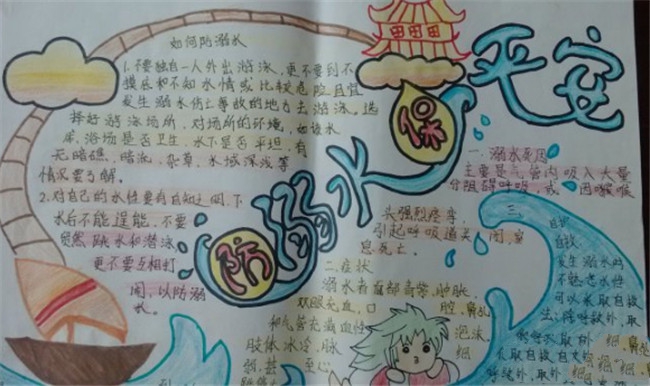 防溺水
保平安
如何防溺水
1.不要独自一人外出游泳，更不要到不
摸底和不知水情或比较危险且宜
发生溺水伤亡事故的地方去游泳。选
择好游泳场所，对场所的环境，如该水
库、浴场是否卫生，水下是否平坦，有
无暗礁、暗流、杂草，水域深浅等
情况要了解。
2.对自己的水性要有自知之明，下
水后不能逞能，不要
贸然跳水和潜泳
更不要互相打
闹，以防溺
水。
一、溺水死因
主要是气管内吸入大量
分阻碍呼吸，或因喉
头强烈痉挛，
引起呼吸道关闭，窒
息死亡。
二、症状
溺水者面部青紫、肿胀、
双眼充血，口腔、鼻孔
和气管充满血性泡沫。
肢体冰冷，脉细
弱，甚至
三、
自救
发生溺水时
不熟悉水性
可以采取自救
法：除呼救外，取